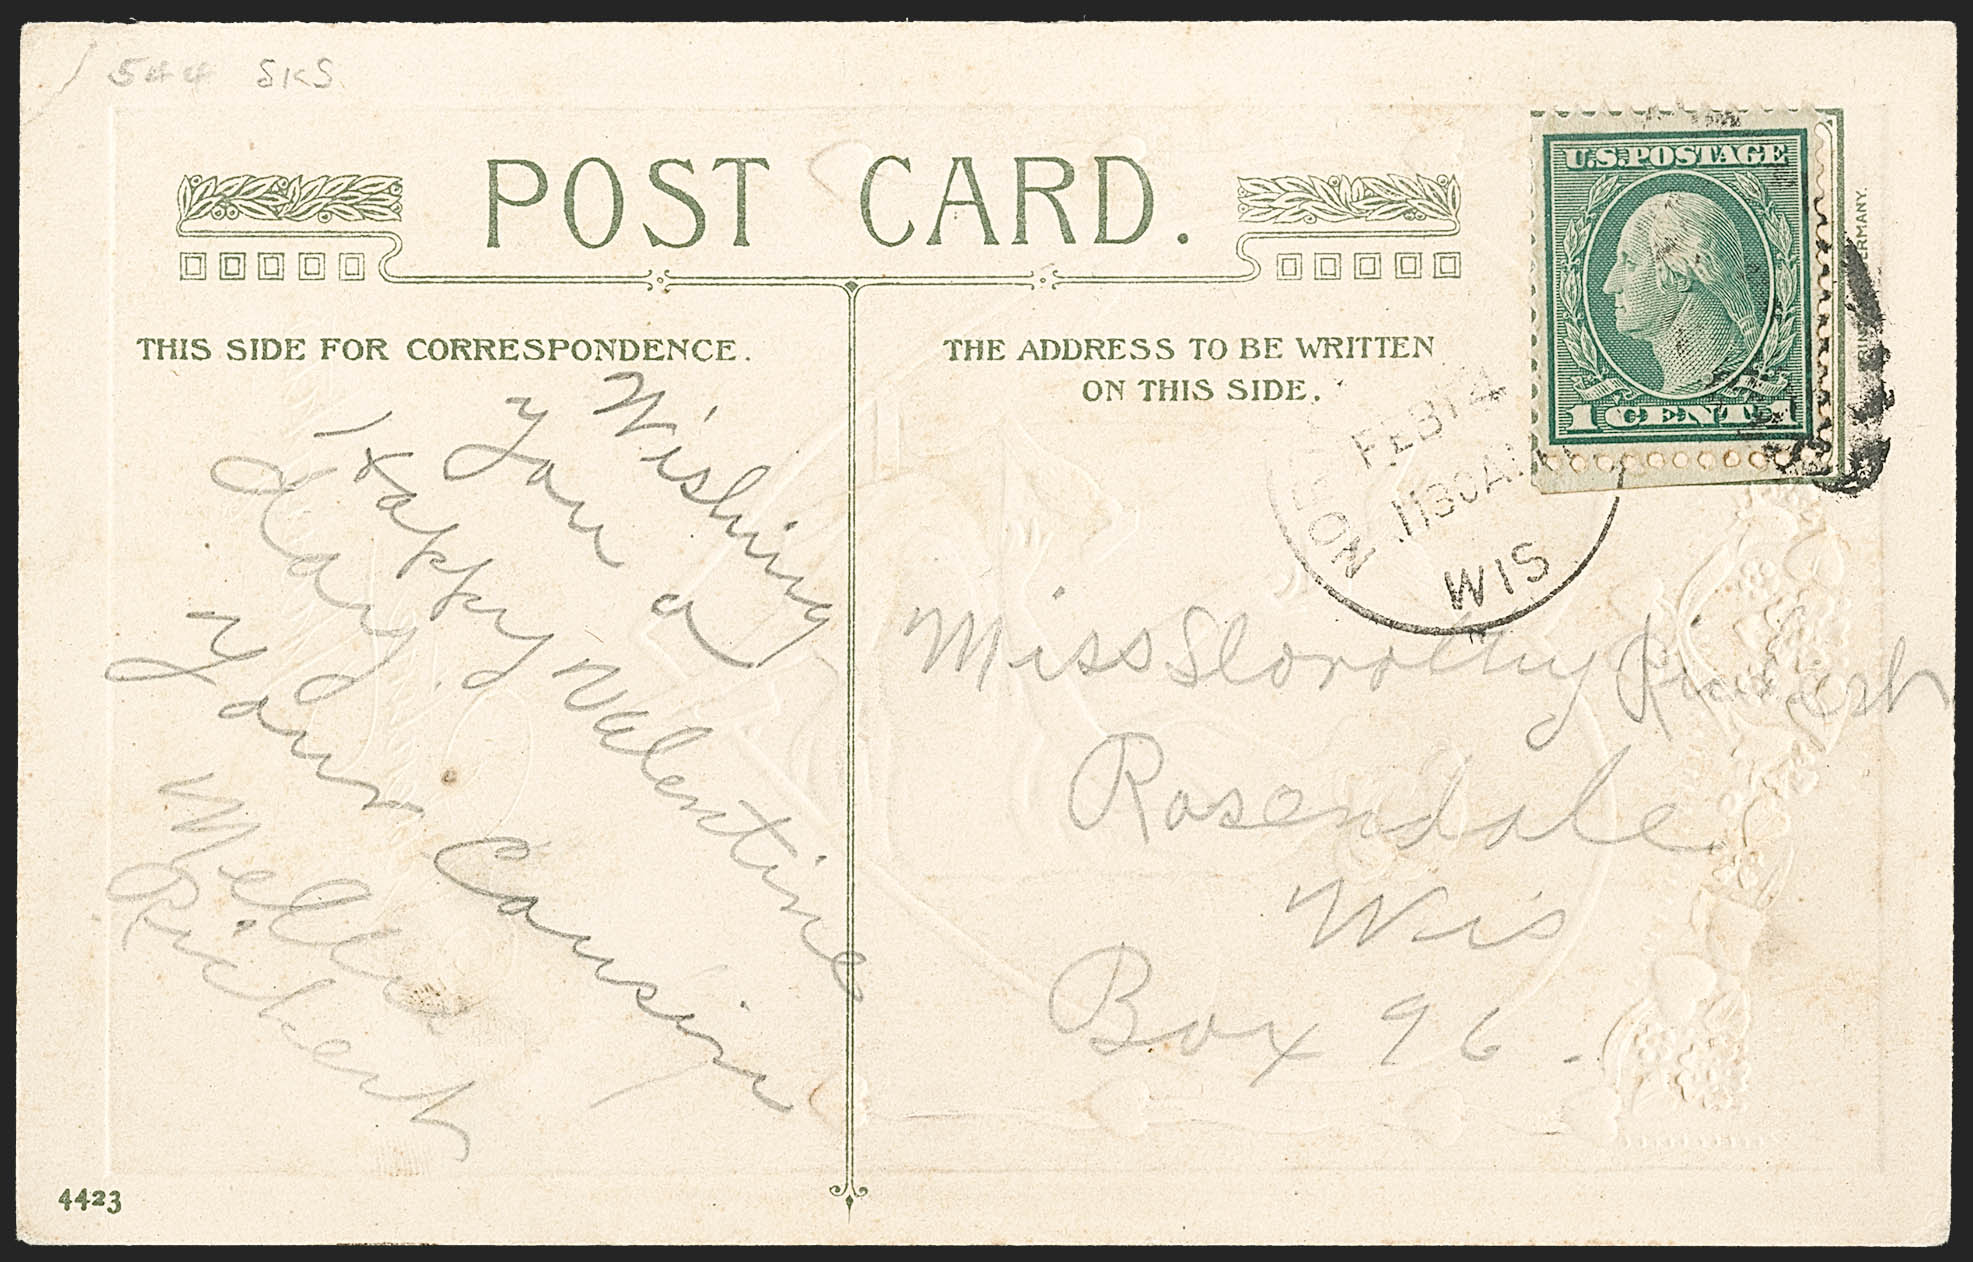 544 SKS
POST CARD.
U.S. POSTAGE
1 CENT 1
THIS SIDE FOR CORRESPONDENCE.
THE ADDRESS TO BE WRITTEN
ON THIS SIDE.
FEB 14
1130 AM
WIS
Wishing
you a
Happy Valentine
day.
Your Cousin
Mella
Richert
Miss Dorothy Richert
Rosendale
Wis
Box 96.
4423